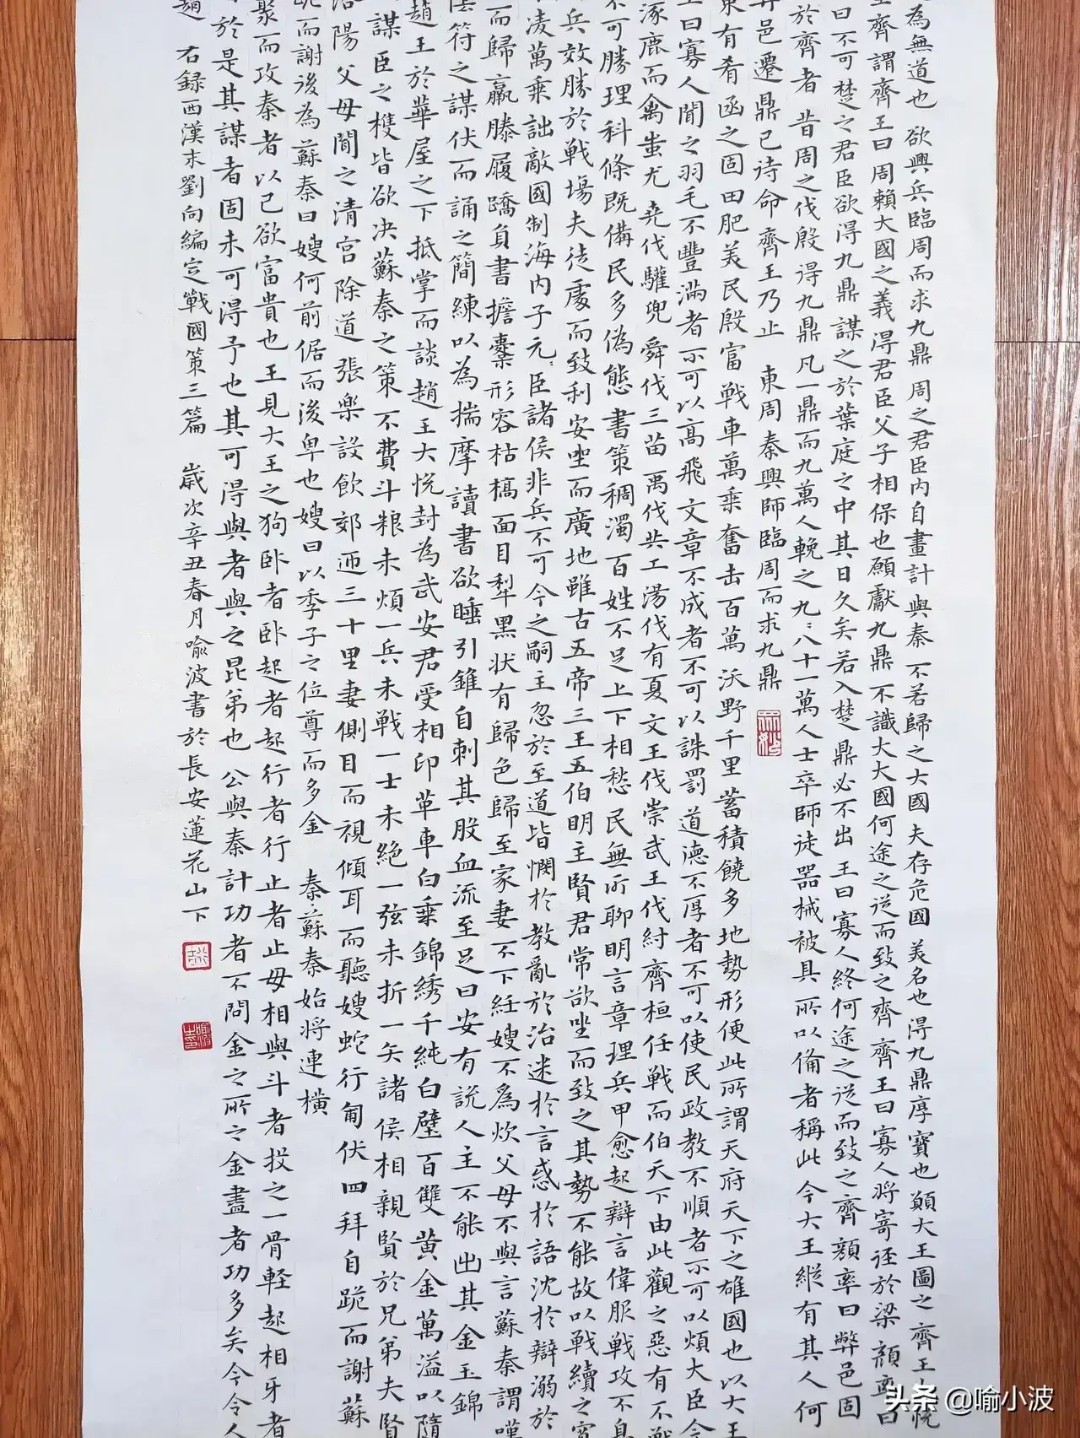 為無道也 欲興兵臨周而求九鼎周之君臣內自畫計與秦不若歸之大國夫存危國美名也得九鼎厚寶也願大王圖之齊王悅
齊謂齊王曰周賴大國之義得君臣父子相保也願獻九鼎不識大大國何途之從而致之齊齊王曰寡人將寄逕於梁顏率曰
曰不可楚之君臣欲得九鼎謀之於葉庭之中其日久矣若入楚鼎必不出王曰寡人終何途之從而致之齊顏率曰弊邑固
於齊者 昔周之伐殷得九鼎凡一鼎而九萬人輓之九々八十一萬人士卒師徒器械被具所以備者稱此今大王縱有其人何
弊邑遷鼎已待命齊王乃止 東周秦興師臨周而求九鼎
東有肴函之固田肥美民殷富戰車萬乘奮击百萬沃野千里蓄積饒多地勢形便此所謂天府天下之雄國也以大王
王曰寡人聞之羽毛不豐滿者不可以高飛文章不成者不可以誅罰道德不厚者不可以使民政教不順者不可以煩大臣今
涿鹿而禽蚩尤堯伐驩兜舜伐三苗禹伐共工湯伐有夏文王伐崇武王伐紂齊桓任戰而伯天下由此觀之惡有不戰
不可勝理科條既備民多偽態書策稠濁百姓不足上下相愁民無所聊明言章理兵甲愈起辯言偉服戰攻不息
兵效勝於戰場夫徒處而致利安坐而廣地雖古五帝三王五伯明主賢君常欲坐而致之其勢不能故以戰續之寬
凌萬乘詘敵國制海內子元々臣諸侯非兵不可今之嗣主忽於至道皆惽於教亂於治迷於言惑於語沈於辯溺於
而歸羸縢履蹻負書擔橐形容枯槁面目犁黑狀有歸色歸至家妻不下紝嫂不為炊父母不與言蘇秦謂嘆
陰符之謀伏而誦之簡練以為揣摩讀書欲睡引錐自刺其股血流至足曰安有說人主不能出其金玉錦
趙王於華屋之下抵掌而談趙王大悅封為武安君受相印革車白乘錦綉千純白璧百雙黃金萬溢以隨
謀臣之權皆欲決蘇秦之策不費斗粮未煩一兵未戰一士未絕一弦未折一矢諸侯相親賢於兄弟夫賢
洛陽父母聞之清宮除道張樂設飲郊迎三十里妻側目而視傾耳而聽嫂蛇行匍伏四拜自跪而謝蘇
而謝後為蘇秦曰嫂何前倨而後卑也嫂曰以季子之位尊而多金 秦蘇秦始將連橫
聚而攻秦者以己欲富貴也王見大王之狗臥者臥起者起行者行止者止毋相與斗者投之一骨輕起相牙者
於是其謀者固未可得予也其可得與者與之昆弟也公與秦計功者不問金之所之金盡者功多矣今令人
趙 右錄西漢末劉向編定戰國策三篇 歲次辛丑春月喻波書於長安蓮花山下
头条@喻小波